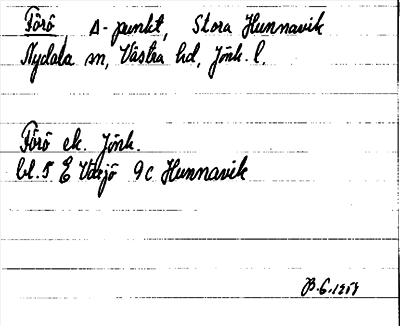 Förö, △-punkt, Stora Hunnavik
Nydala sn, Västra hd, Jönk. l.
Förö ek. Jönk.
bl. 5 E Växjö 9c Hunnavik